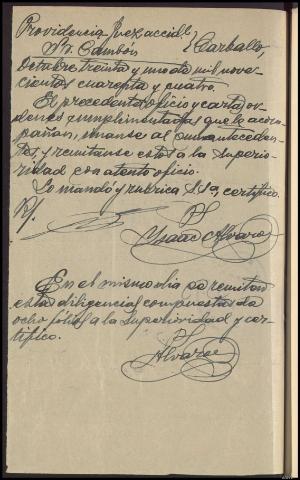 Providencia Juez accidl.,
Sr. Cambón } Carballo,
Octubre treinta y uno de mil nove-
cientos cuarenta y cuatro.
El precedente oficio y carta or-
denes cumplimentadas que le acom-
pañan, únanse al
tes, y remítanse estos a la Superio-
ridad con atento oficio.
Lo mandó y rubrica S.Sa., certifico.
R/.
Isaac Alvarez
En el mismo dia se remiten
estas diligencias compuestas de
ocho fólios a la Superioridad y cer-
tifico.
Alvarez